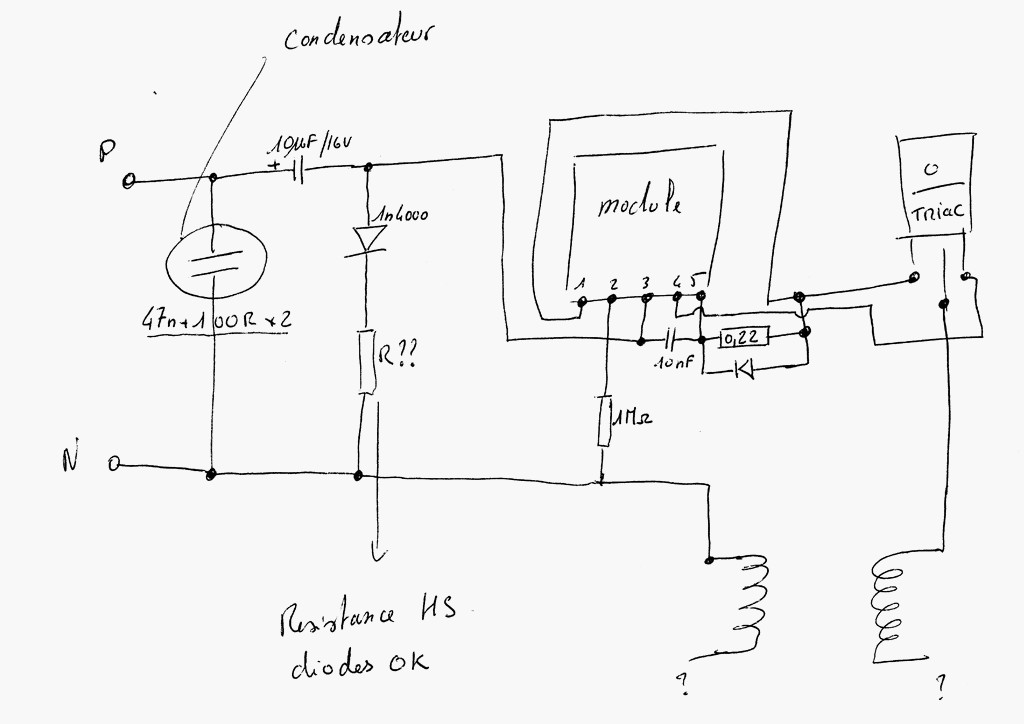 Condensateur
P
+ 10µF/16V
1n4000
47n+100R x2
R??
N
Resistance HS
diodes OK
module
1 2 3 4 5
10nF
0,22
1MΩ
O
TRiAC
?
?